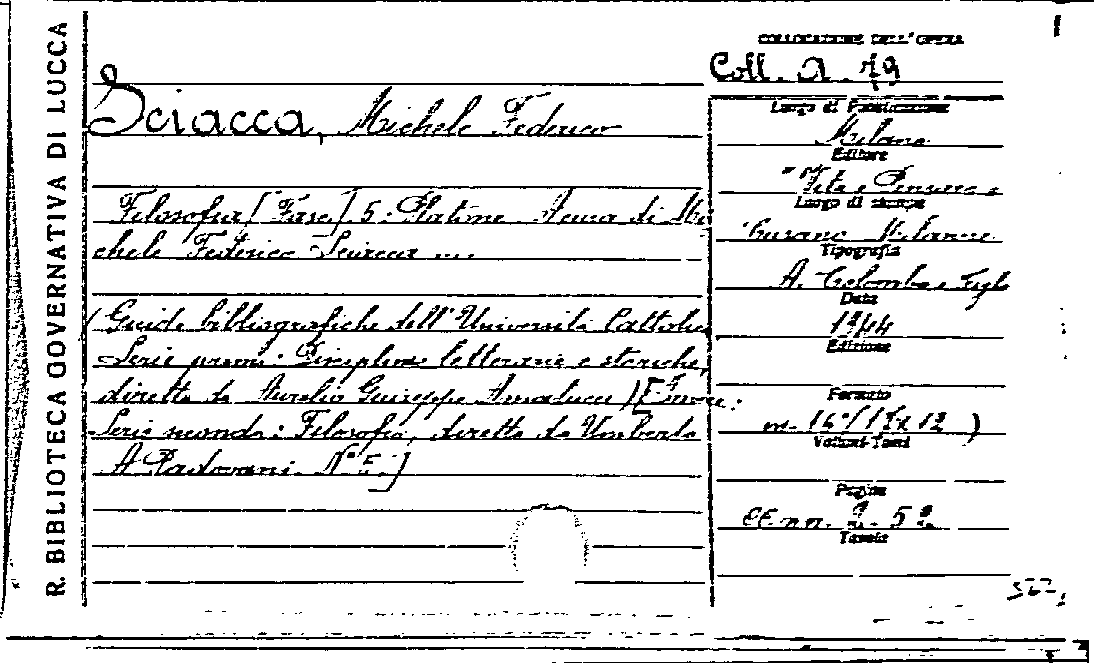 R. BIBLIOTECA GOVERNATIVA DI LUCCA
COLLOCAZIONE DELL'OPERA
Coll. A. 79
Sciacca, Michele Federico
Filosofia [Fasc.] 5: Platone. A cura di Mi
chele Federico Sciacca ....
(Guide bibliografiche dell'Università Cattolica
Serie prima: Discipline letterarie e storiche,
diretta da Aurelio Giuseppe Amatucci) [Invece:
Serie seconda: Filosofia, diretta da Umberto
A. Padovani. N° 5.]
Luogo di Pubblicazione
Milano
Editore
"Vita e Pensiero"
Luogo di stampa
Cusano Milanino
Tipografia
A. Colombo e Figli
Data
1944
Edizione
Formato
in-16° (17x12)
Volumi-Tomi
Pagine
CC nn. 2. 52
Tavole